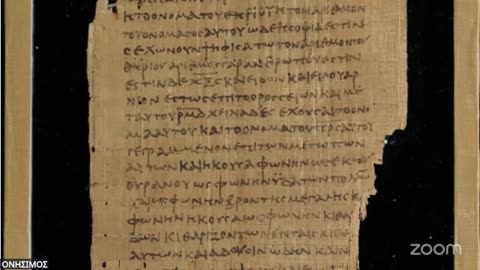 ΗΤΟΟΝΟΜΑΤΟΥΘΗΡΙΟΥΗΤΟΝΑΡΙΘΜΟΝ
ΤΟΥΟΝΟΜΑΤΟϹΑΥΤΟΥΩΔΕΗϹΟΦΙΑΕϹΤΙΝ
ΕΧΩΝΝΟΥΝΨΗΦΙϹΑΤΩΤΟΝΑΡΙΘΜΟΝΤΟΥ
ΘΗΡΙΟΥΑΡΙΘΜΟϹΓΑΡΑΝΘΡΩΠΟΥΕϹΤΙΝ
ΕϹΤΙΝΔΕΧΞϚΚΑΙΕΙΔΟΝΚΑΙΕΙΔΟΥΑΡ
ΝΙΟΝΕϹΤΩϹΕΠΙΤΟΟΡΟϹϹΕΙΩΝΚΑΙΜΕ
ΤΑΥΤΟΥΡΜΔΧΕΙΛΙΑΔΕϹΕΧΟΥϹΑΙΤΟΟΝΟ
ΜΑΑΥΤΟΥΚΑΙΤΟΟΝΟΜΑΤΟΥΠΡϹΑΥΤΟΥ
ΓΕΓΡΑΜΜΕΝΟΝΕΠΙΤΩΝΜΕΤΩΠΩΝ
ΑΥΤΩΝΚΑΙΗΚΟΥϹΑΦΩΝΗΝΕΚΤΟΥ
ΟΥΡΑΝΟΥΩϹΦΩΝΗΝΥΔΑΤΩΝΠΟΛΛΩ
ΚΑΙΩϹΦΩΝΗΝΒΡΟΝΤΗϹΜΕΓΑΛΗϹΚ
ΦΩΝΗΝΗΚΟΥϹΑΩϹΦΩΝΗΝΚΙΘΑ
ΔΩΝΚΙΘΑΡΙΖΟΝΤΩΝΕΝΤΑΙϹΚΙΘΑ
ΑΥΤΩΝΚΑΙΑΔΟΥϹΙΝΩΔΗΝΚΑΙΝ
ΟΝΗΣΙΜΟΣ
zoom